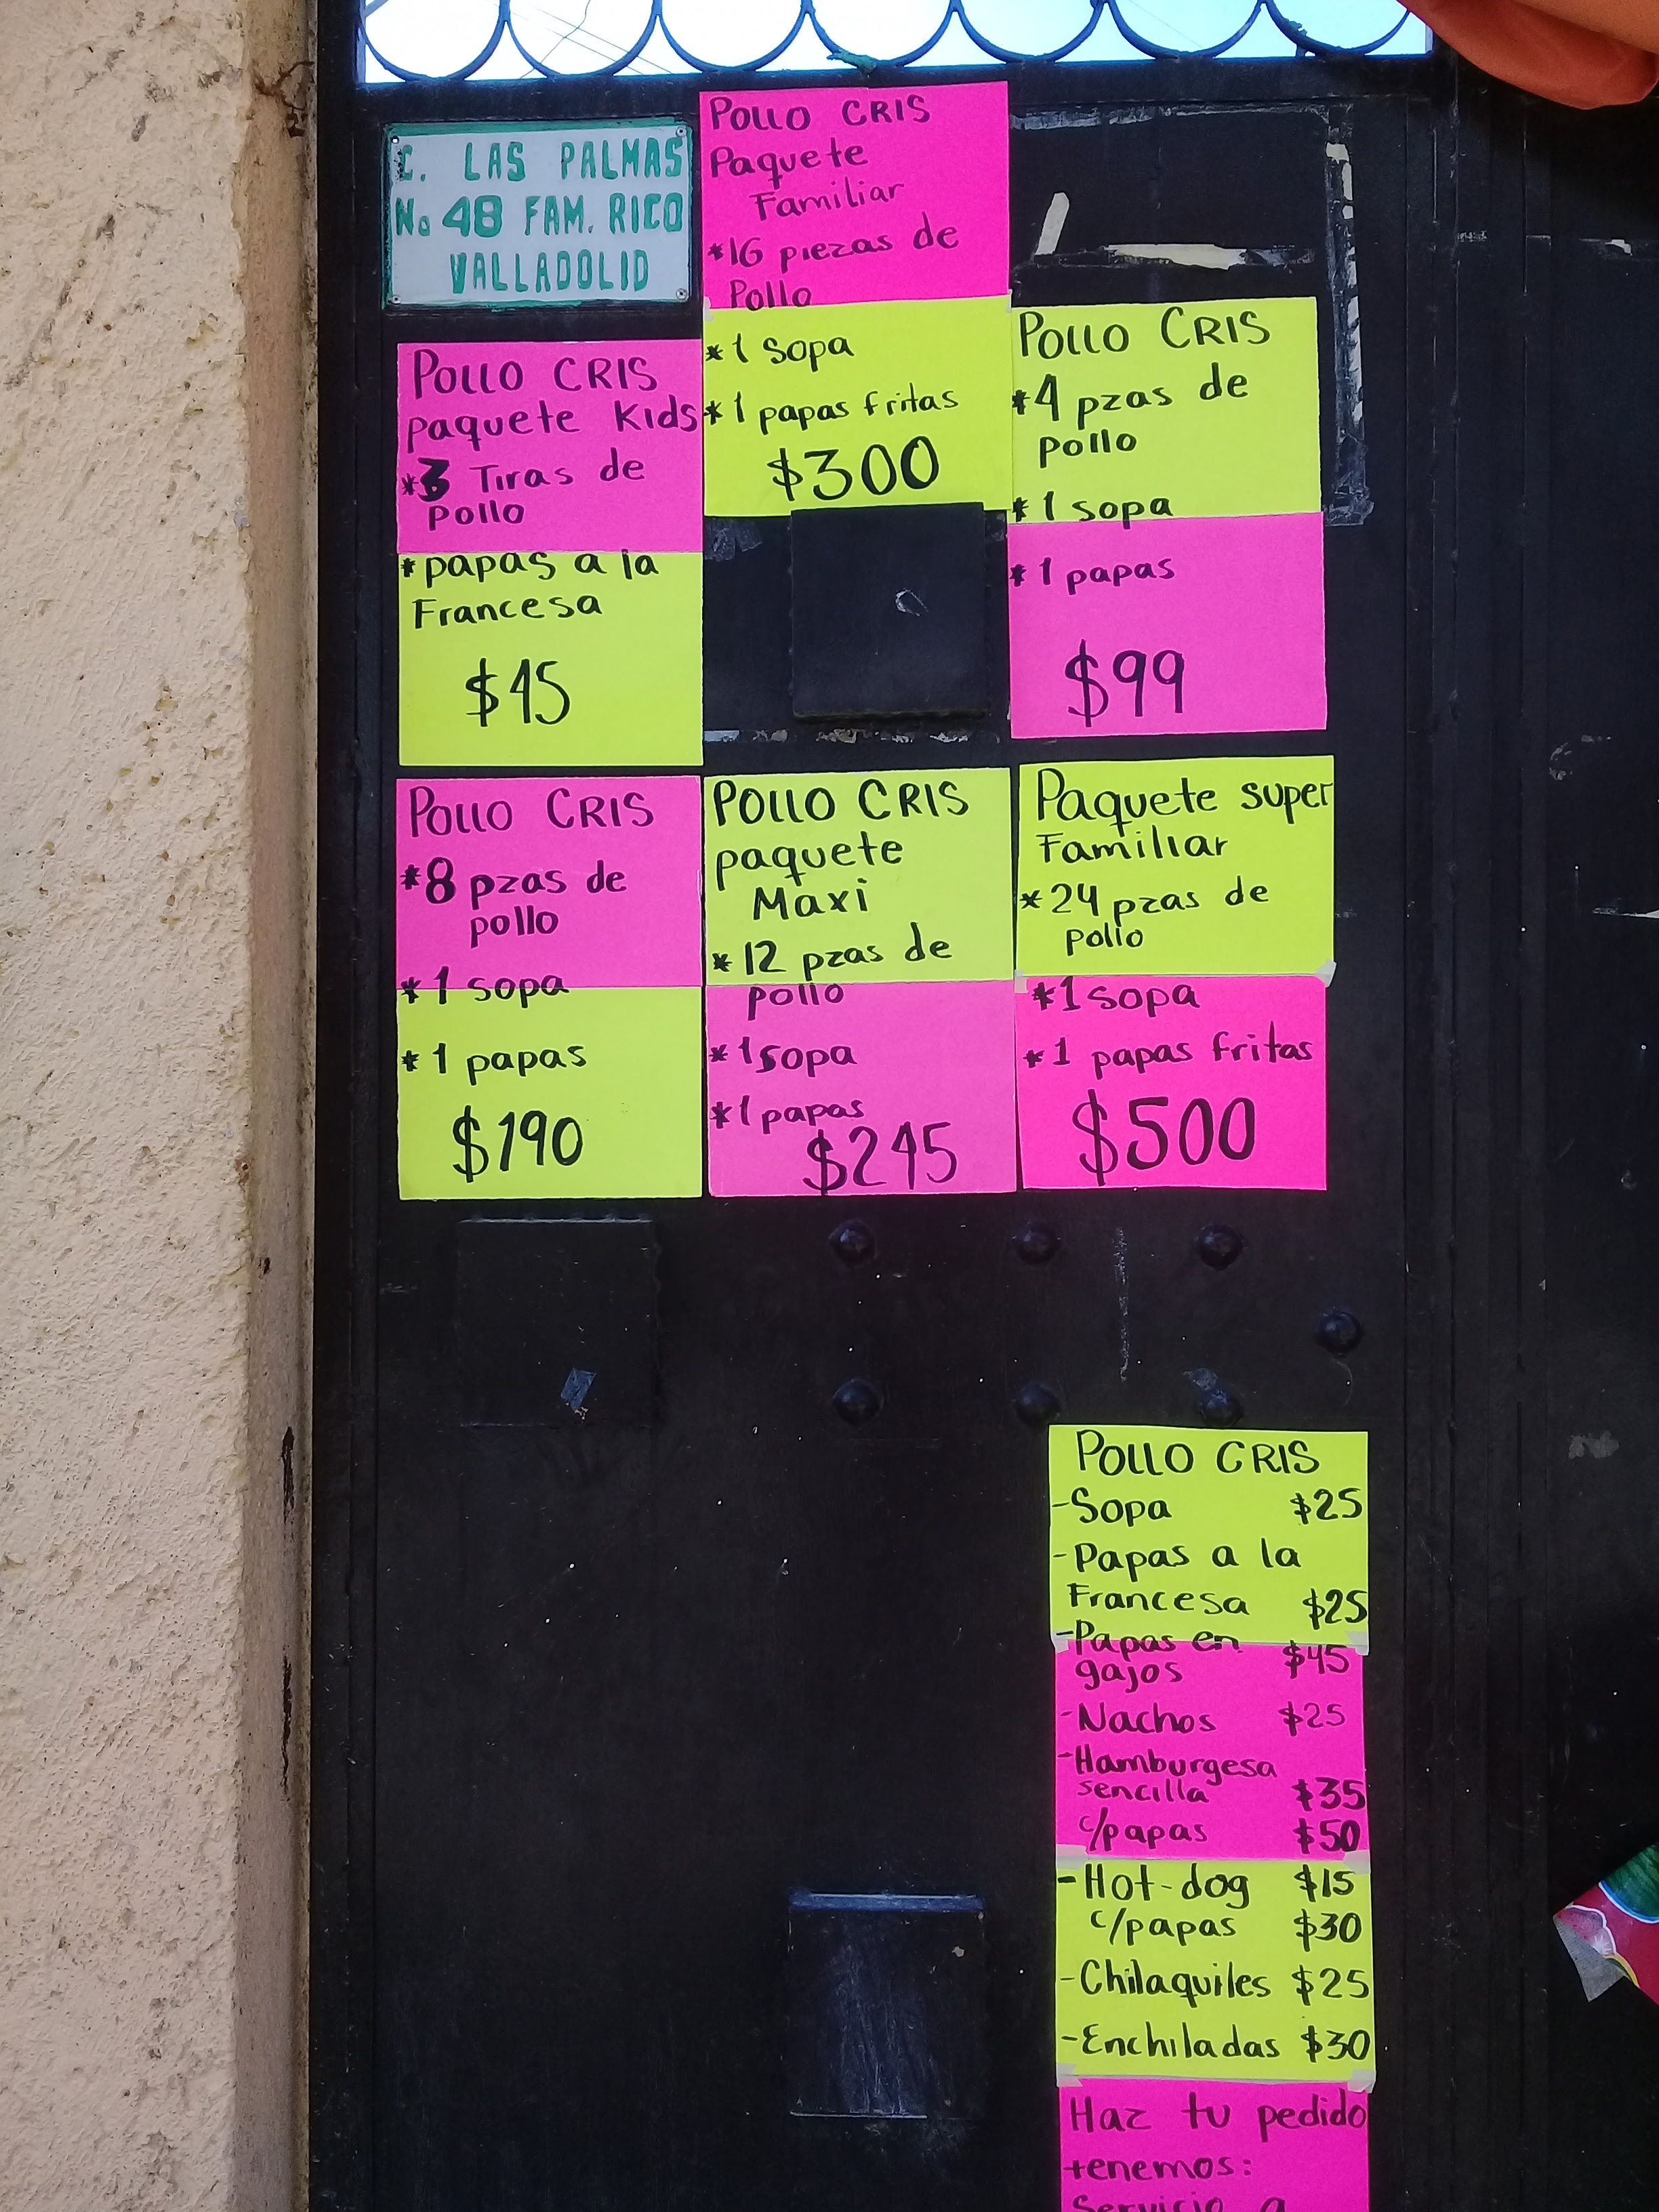 C. LAS PALMAS
No 48 FAM. RICO
VALLADOLID
POLLO CRIS
Paquete
Familiar
*16 piezas de
Pollo
*1 Sopa
*1 papas fritas
$300
POLLO CRIS
*4 pzas de
pollo
*1 sopa
*1 papas
$99
POLLO CRIS
paquete Kids
*3 Tiras de
pollo
*papas a la
Francesa
$45
POLLO CRIS
*8 pzas de
pollo
*1 sopa
*1 papas
$190
POLLO CRIS
paquete
Maxi
*12 pzas de
pollo
*1 sopa
*1 papas
$245
Paquete super
Familiar
*24 pzas de
pollo
*1 sopa
*1 papas fritas
$500
POLLO CRIS
-Sopa $25
-Papas a la
Francesa $25
-Papas en
gajos $45
-Nachos $25
-Hamburgesa
sencilla $35
c/papas $50
-Hot-dog $15
c/papas $30
-Chilaquiles $25
-Enchiladas $30
Haz tu pedido
tenemos:
Servicio a